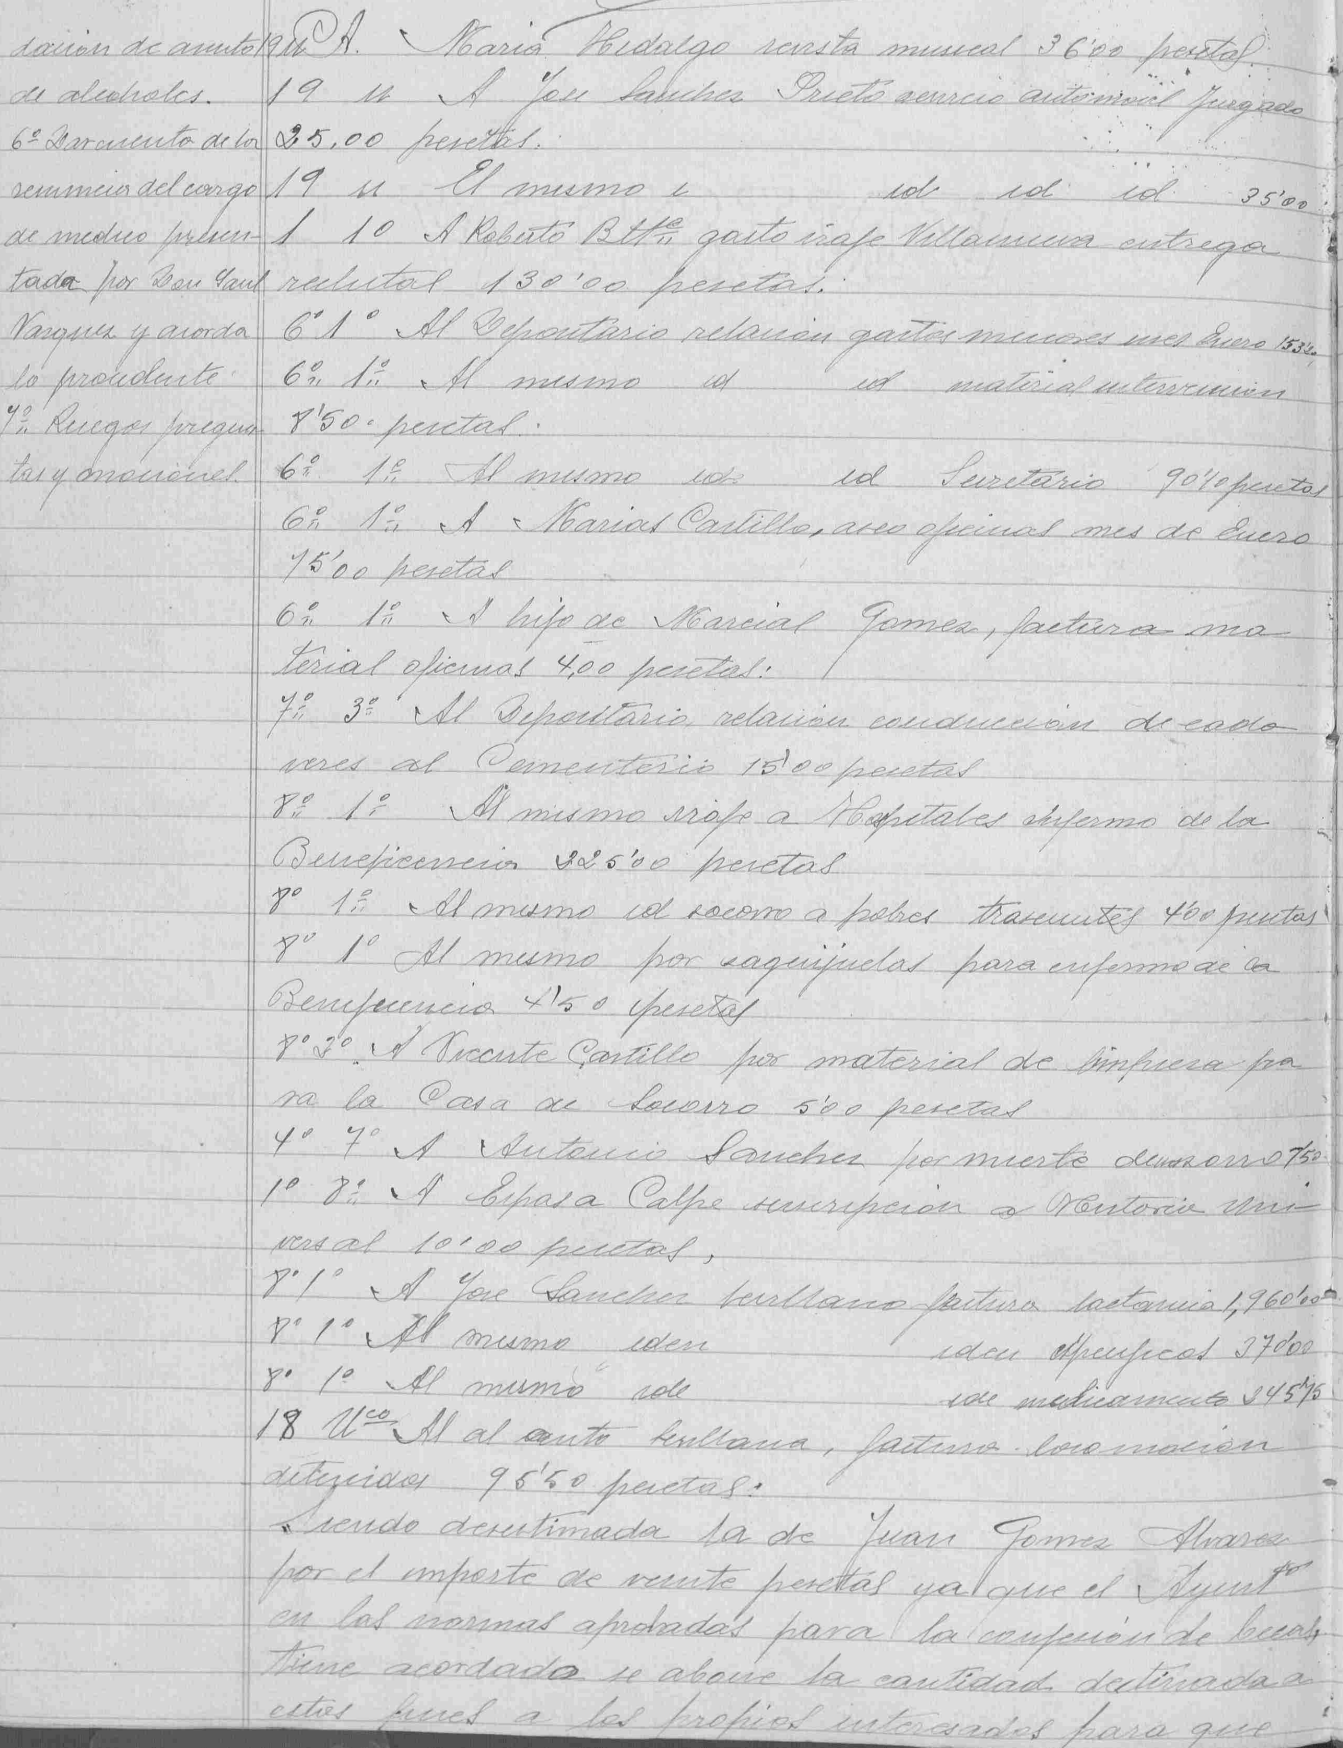 dación de asunto
de alcoholes.
6º Dar cuenta de la
renuncia del cargo
de medico presen-
tada por Don Saul
Vazquez y acordar
lo procedente
7º Ruegos pregun
tas y mociones.
19 u A. Maria Hidalgo revista musical 36'00 pesetas.
19 u A Jose Sanchez Prieto servicio automovil Juzgado
25,00 pesetas.
19 u El mismo id id id 35'00
1 10 A Roberto gasto viaje Villanueva entrega
reclutas 130'00 pesetas.
6º 1º Al Depositario relacion gastos menores mes Enero
6º 1º Al mismo id id material intervencion
8'50 pesetas.
6º 1º Al mismo id id Secretario 90'10 pesetas
6º 1º A Marias Castillo, aseo oficinas mes de Enero
75'00 pesetas
6º 1º A hijo de Marcial Gomez, factura ma
terial oficinas 4,00 pesetas:
7º 3º Al Depositario relacion conduccion de cada
veres al Cementerio 15'00 pesetas
8º 1º Al mismo viaje a Hospitales enfermo de la
Beneficencia 225'00 pesetas
8º 1º Al mismo id socorro a pobres transeuntes 4'00 pesetas
8º 1º Al mismo por sagüijuelas para enfermo de la
Beneficencia 4'50 pesetas
8º 2º A Vicente Castillo por material de limpieza pa
ra la Casa de Socorro 5'00 pesetas
4º 7º A Antonio Sanchez por muerte de un zorro 7'50
1º 8º A Espasa Calpe suscripcion a Historia Uni-
versal 10'00 pesetas,
8º 1º A Jose Sanchez Sevillano factura lactancia 1,960'00
8º 1º Al mismo iden iden especificos 370'00
8º 1º Al mismo ide ide medicamento 245'75
18 Uco Al al auto Sevillana, factura locomocion
detenidos 95'50 pesetas:
Siendo desestimada la de Juan Gomez Alvarez
por el importe de veinte pesetas ya que el Ayuntº
en las normas aprobadas para la confesion de becas,
tiene acordado se abone la cantidad destinada a
estos fines a los propios interesados para que